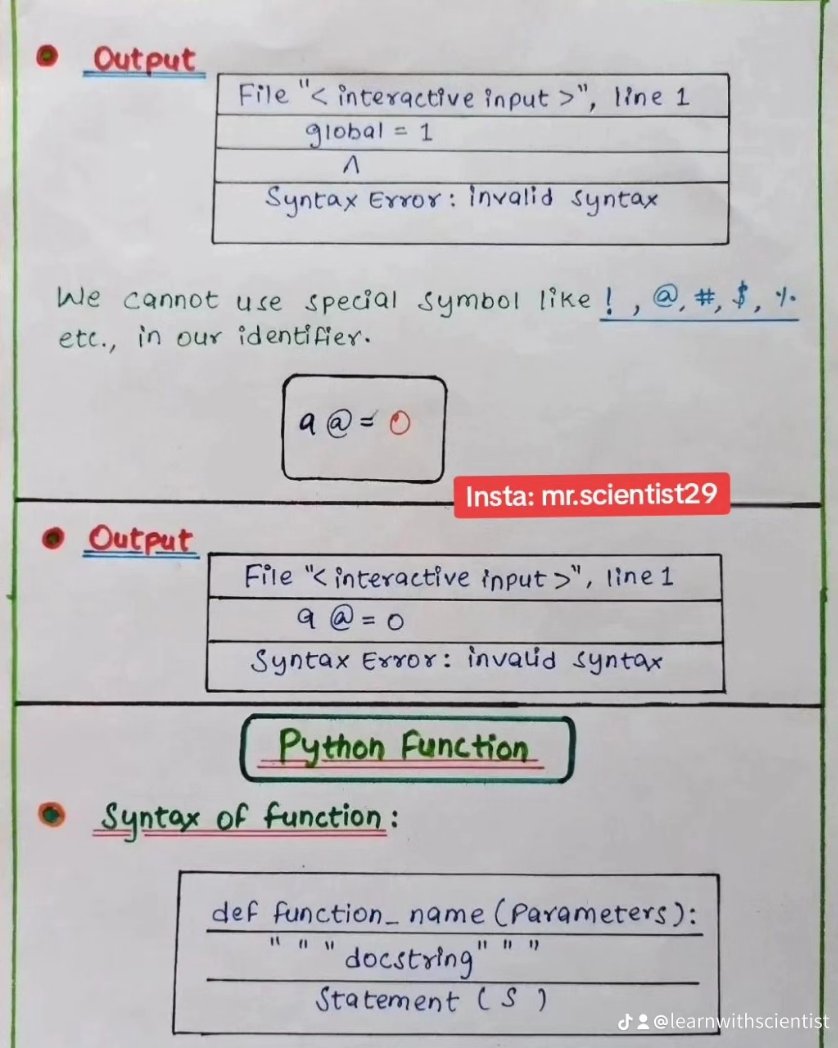 Output
File "< interactive input >", line 1
global = 1
^
Syntax Error: invalid syntax
We cannot use special symbol like !, @, #, $, %
etc., in our identifier.
a @ = 0
Insta: mr.scientist29
Output
File "< interactive input >", line 1
a @ = 0
Syntax Error: invalid syntax
Python Function
Syntax of function:
def function_name (Parameters):
" " " docstring " " "
Statement ( S )
@learnwithscientist